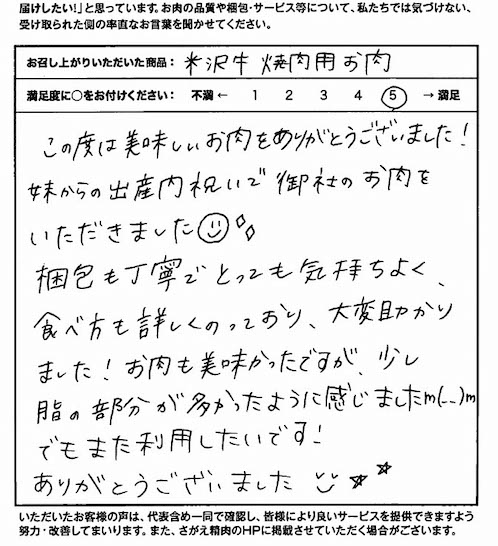 届けしたい!」と思っています。お肉の品質や梱包・サービス等について、私たちでは気づけない、
受け取られた側の率直なお言葉を聞かせてください。
お召し上がりいただいた商品： 米沢牛 焼肉用お肉
満足度に○をお付けください： 不満 ← 1 2 3 4 5 → 満足
この度は美味しいお肉をありがとうございました！
妹からの出産内祝いで御社のお肉を
いただきました
梱包も丁寧でとっても気持ちよく、
食べ方も詳しくのっており、大変助かり
ました！お肉も美味かったですが、少し
脂の部分が多かったように感じましたm(_ _)m
でもまた利用したいです！
ありがとうございました
いただいたお客様の声は、代表含め一同で確認し、皆様により良いサービスを提供できますよう
努力・改善してまいります。また、さがえ精肉のHPに掲載させていただく場合がございます。